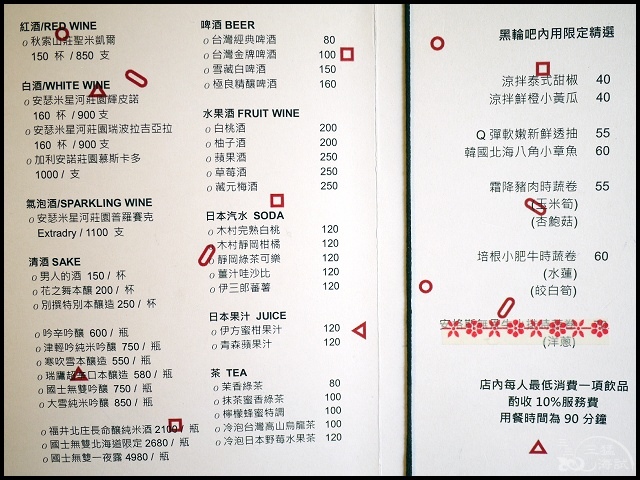 紅酒/RED WINE
o 秋索山莊聖米凱爾
150 杯 / 850 支
白酒/WHITE WINE
o 安瑟米星河莊園輝皮諾
160 杯 / 900 支
o 安瑟米星河莊園瑞波拉吉亞拉
160 杯 / 900 支
o 加利安諾莊園慕斯卡多
1000 / 支
氣泡酒/SPARKLING WINE
o 安瑟米星河莊園普羅賽克
Extradry / 1100 支
清酒 SAKE
o 男人的酒 150 / 杯
o 花之舞本釀 200 / 杯
o 別撰特別本釀造 250 / 杯
o 吟辛吟釀 600 / 瓶
o 津輕吟純米吟釀 750 / 瓶
o 寒吹雪本釀造 550 / 瓶
o 瑞鷹超辛口本釀造 580 / 瓶
o 國士無雙吟釀 750 / 瓶
o 大雪純米吟釀 850 / 瓶
o 福井北庄長命釀純米酒 2100 / 瓶
o 國士無雙北海道限定 2680 / 瓶
o 國士無雙一夜露 4980 / 瓶
啤酒 BEER
o 台灣經典啤酒 80
o 台灣金牌啤酒 100
o 雪藏白啤酒 150
o 極良精釀啤酒 160
水果酒 FRUIT WINE
o 白桃酒 200
o 柚子酒 200
o 蘋果酒 250
o 草莓酒 250
o 藏元梅酒 250
日本汽水 SODA
o 木村完熟白桃 120
o 木村靜岡柑橘 120
o 靜岡綠茶可樂 120
o 薑汁哇沙比 120
o 伊三郎蕃薯 120
日本果汁 JUICE
o 伊方蜜柑果汁 120
o 青森蘋果汁 120
茶 TEA
o 茉香綠茶 80
o 抹茶蜜香綠茶 100
o 檸檬蜂蜜特調 100
o 冷泡台灣高山烏龍茶 100
o 冷泡日本野莓水果茶 120
黑輪吧內用限定精選
涼拌泰式甜椒 40
涼拌鮮橙小黃瓜 40
Q 彈軟嫩新鮮透抽 55
韓國北海八角小章魚 60
霜降豬肉時蔬卷 55
(玉米筍)
(杏鮑菇)
培根小肥牛時蔬卷 60
(水蓮)
(皎白筍)
(洋蔥)
店內每人最低消費一項飲品
酌收 10%服務費
用餐時間為 90 分鐘